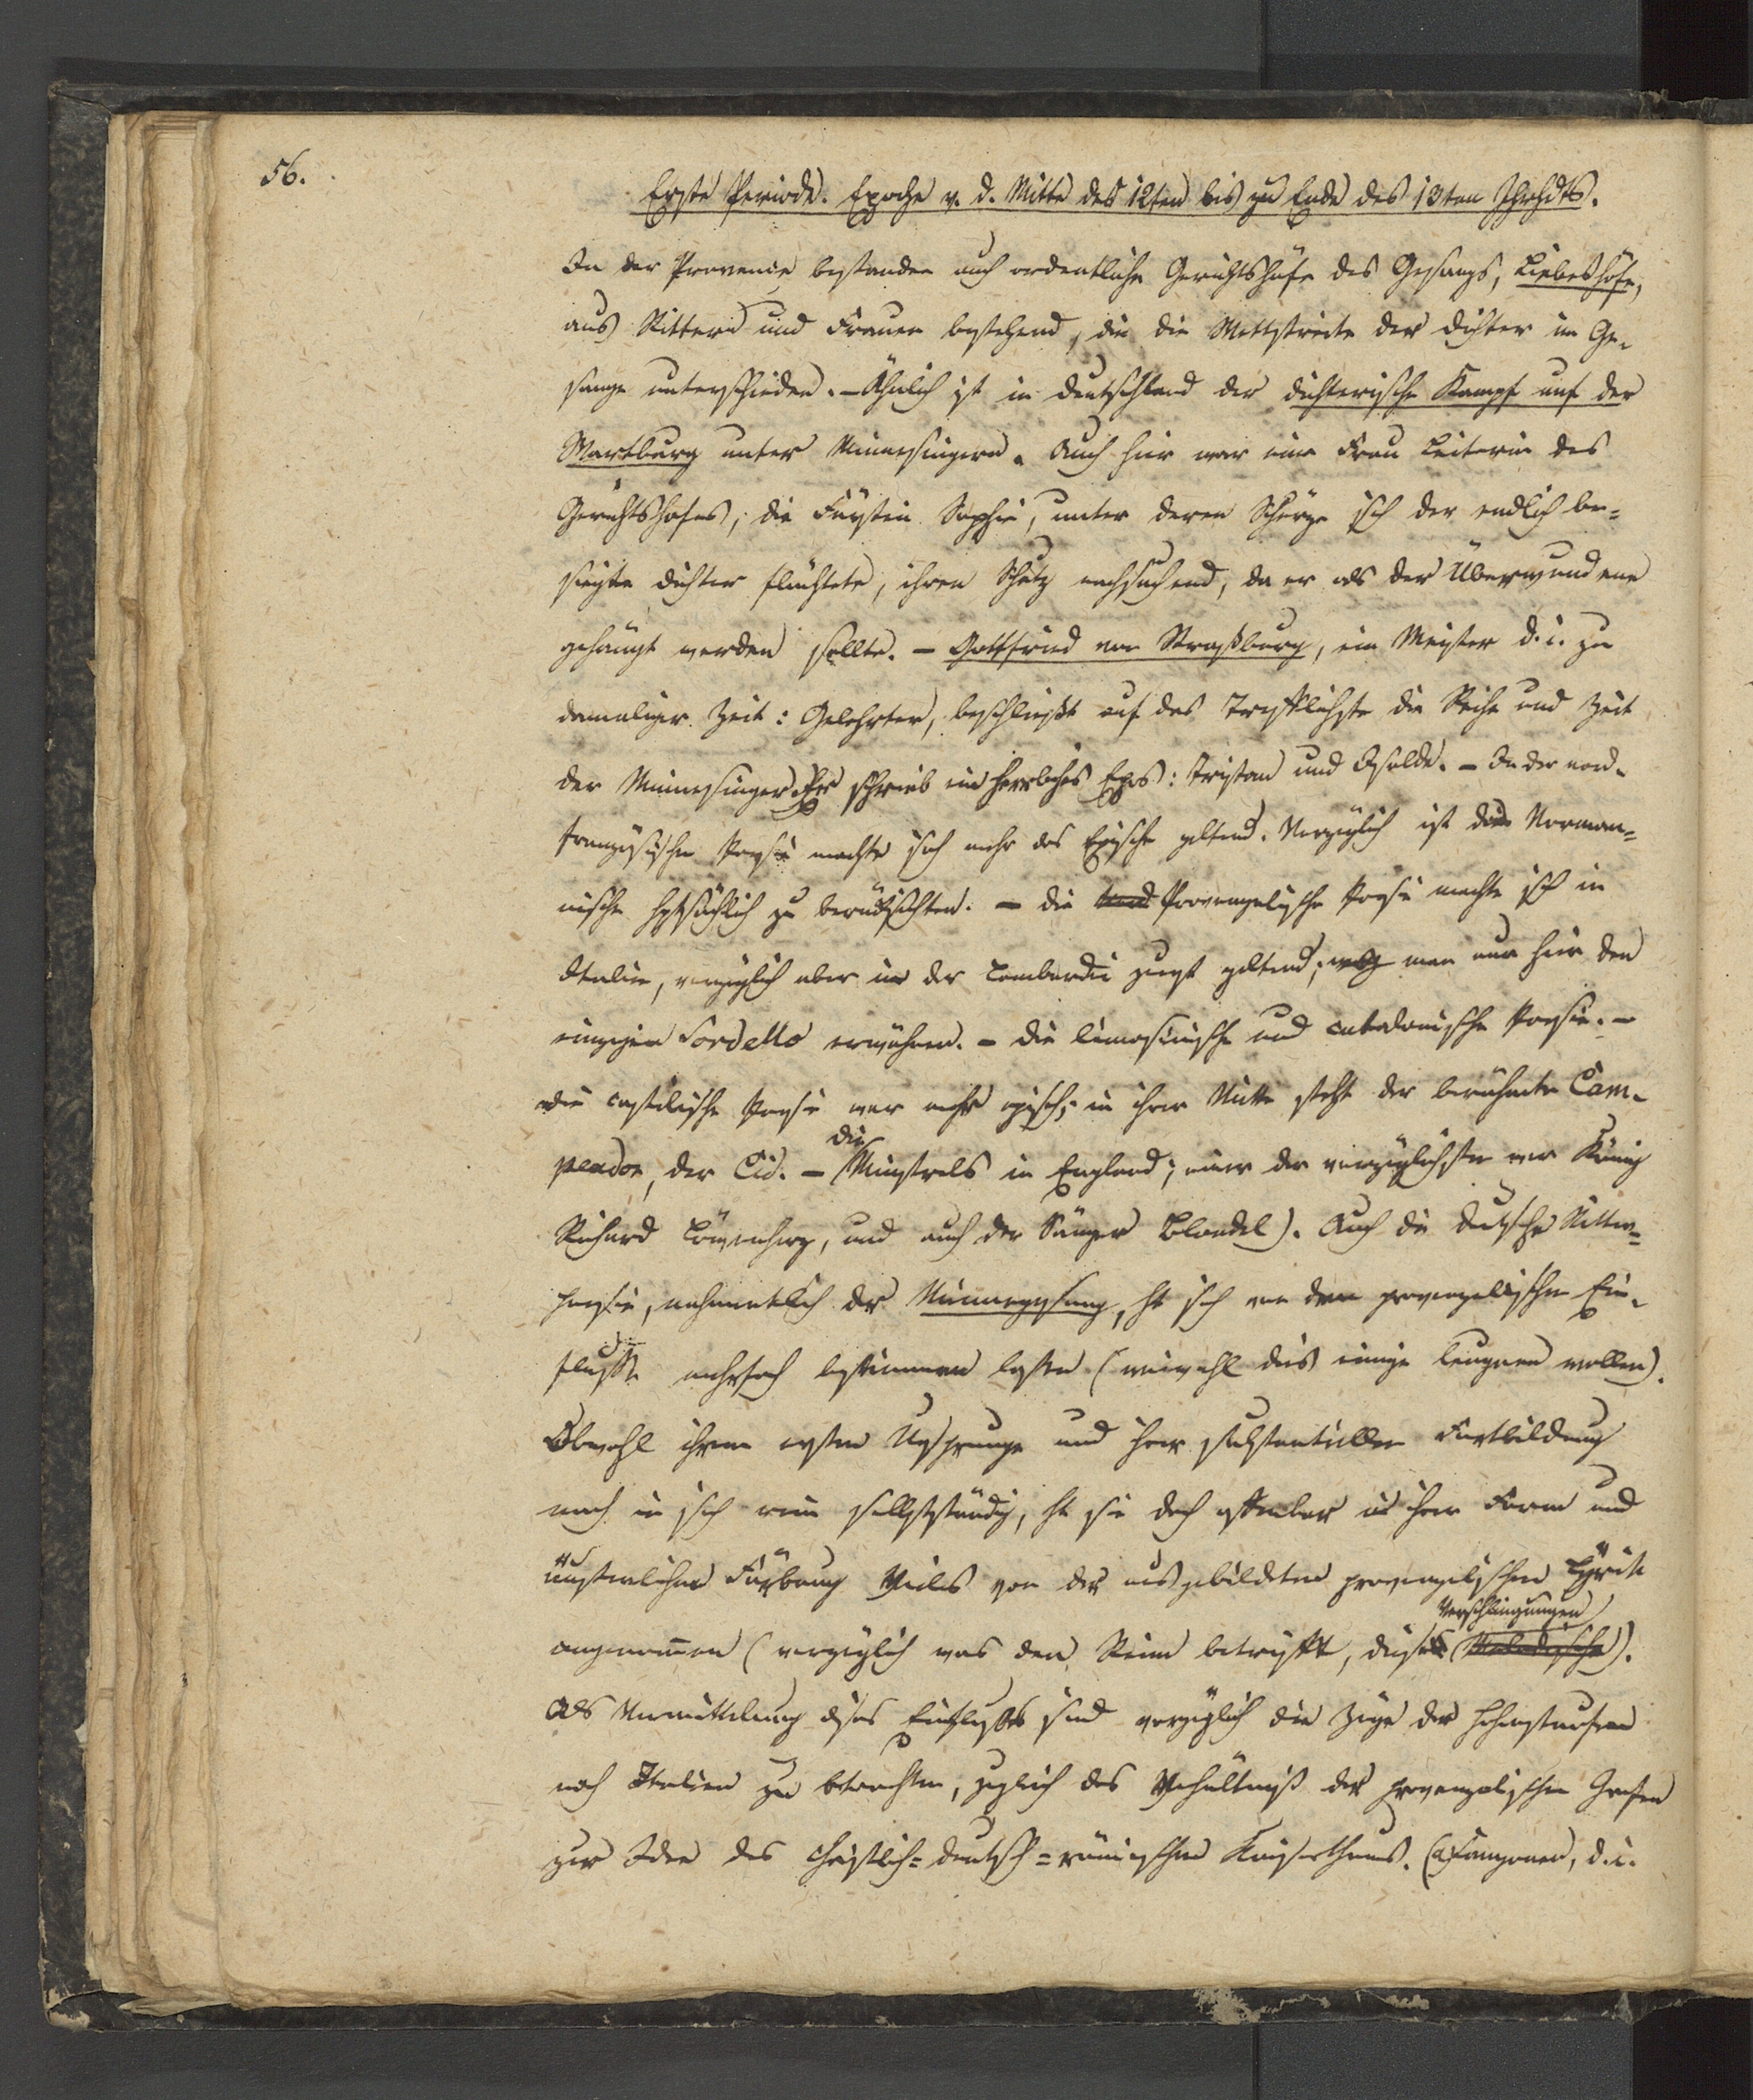 56.
Erste Periode. Epoche v. d. Mitte des 12ten bis zu Ende des 13ten Jhrhdts.
In der Provence bestanden auch ordentliche Gerichtshöfe des Gesangs, Liebeshöfe,
aus Rittern und Frauen bestehend, die die Wettstreite der Dichter im Ge-
sange unterschieden. – Ähnlich ist in Deutschland der dichterische Kampf auf der
Wartburg unter Minnesingern. Auch hier war eine Frau Leiterin des
Gerichtshofes; die Fürstin Sophie, unter deren Schürze sich der endlich be-
siegte Dichter flüchtete, ihren Schutz nachsuchend, da er als der Überwundene
gehängt werden sollte. – Gottfried von Straßburg, ein Meister d. i. zu
damaliger Zeit: Gelehrter, beschließt auf das Trefflichste die Reihe und Zeit
der Minnesinger. Er schrieb ein herrliches Epos: Tristan und Isolde. – In der nord-
französischen Poesie machte sich mehr das Epische geltend. Vorzüglich ist die Norman-
nische hptsächlich zu berücksichten. – die Provenzalische Poesie machte sich in
Italien, vorzüglich aber in der Lombardei zuerst geltend; man nur hier den
einzigen Sordello erwähnen. – Die limosinische und catalonische Poesie. –
Die castilische Poesie war mehr episch; in ihrer Mitte steht der berühmte Cam-
peador, der Cid. – Die Minstrels in England; einer der vorzüglichsten war König
Richard Löwenherz, und auch der Sänger Blondel). Auch die deutsche Ritter-
poesie, nahmentlich der Minnegesang, ht sich von dem provenzalischen Ein-
flusse mehrfach bestimmen lassen (wiewohl dies einige leugnen wollen).
Obwohl ihrem ersten Ursprunge und ihrer substantiellen Fortbildung
nach in sich rein selbstständig, ht sie doch offenbar in ihrer Form und
äusserlichen Färbung Vieles von der ausgebildeten provenzalischen Lyrik
angenom̄en (vorzüglich was den Reim betrifft, dessen Verschlingungen).
Als Vermittelung dieses Einflusses sind vorzüglich die Züge der Hohenstaufen
nach Italien zu betrachten, zugleich das Verhältniß der provenzalischen Grafen
zur Idee des christlich-deutsch-römischen Kaiserthums. (Canzonen, d. i.